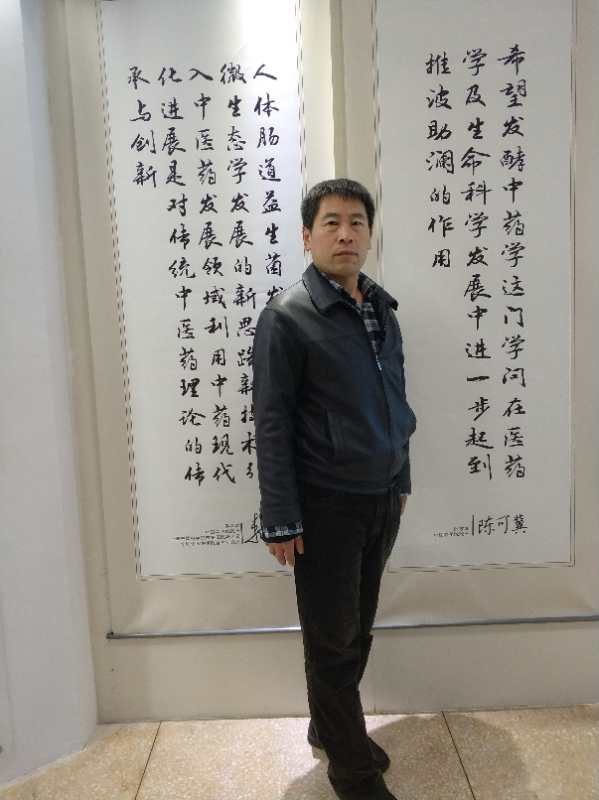 希望发酵中药学这门学问在医药
学及生命科学发展中进一步起到
推波助澜的作用
陈可冀
人体肠道益生菌发
微生态学发展的新思路新技术引
入中医药发展领域利用中药现代
化进展是对传统中医药理论的传
承与创新